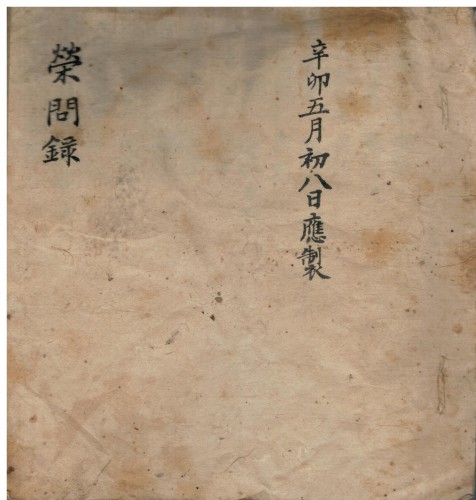 辛卯五月初八日應製
榮問錄